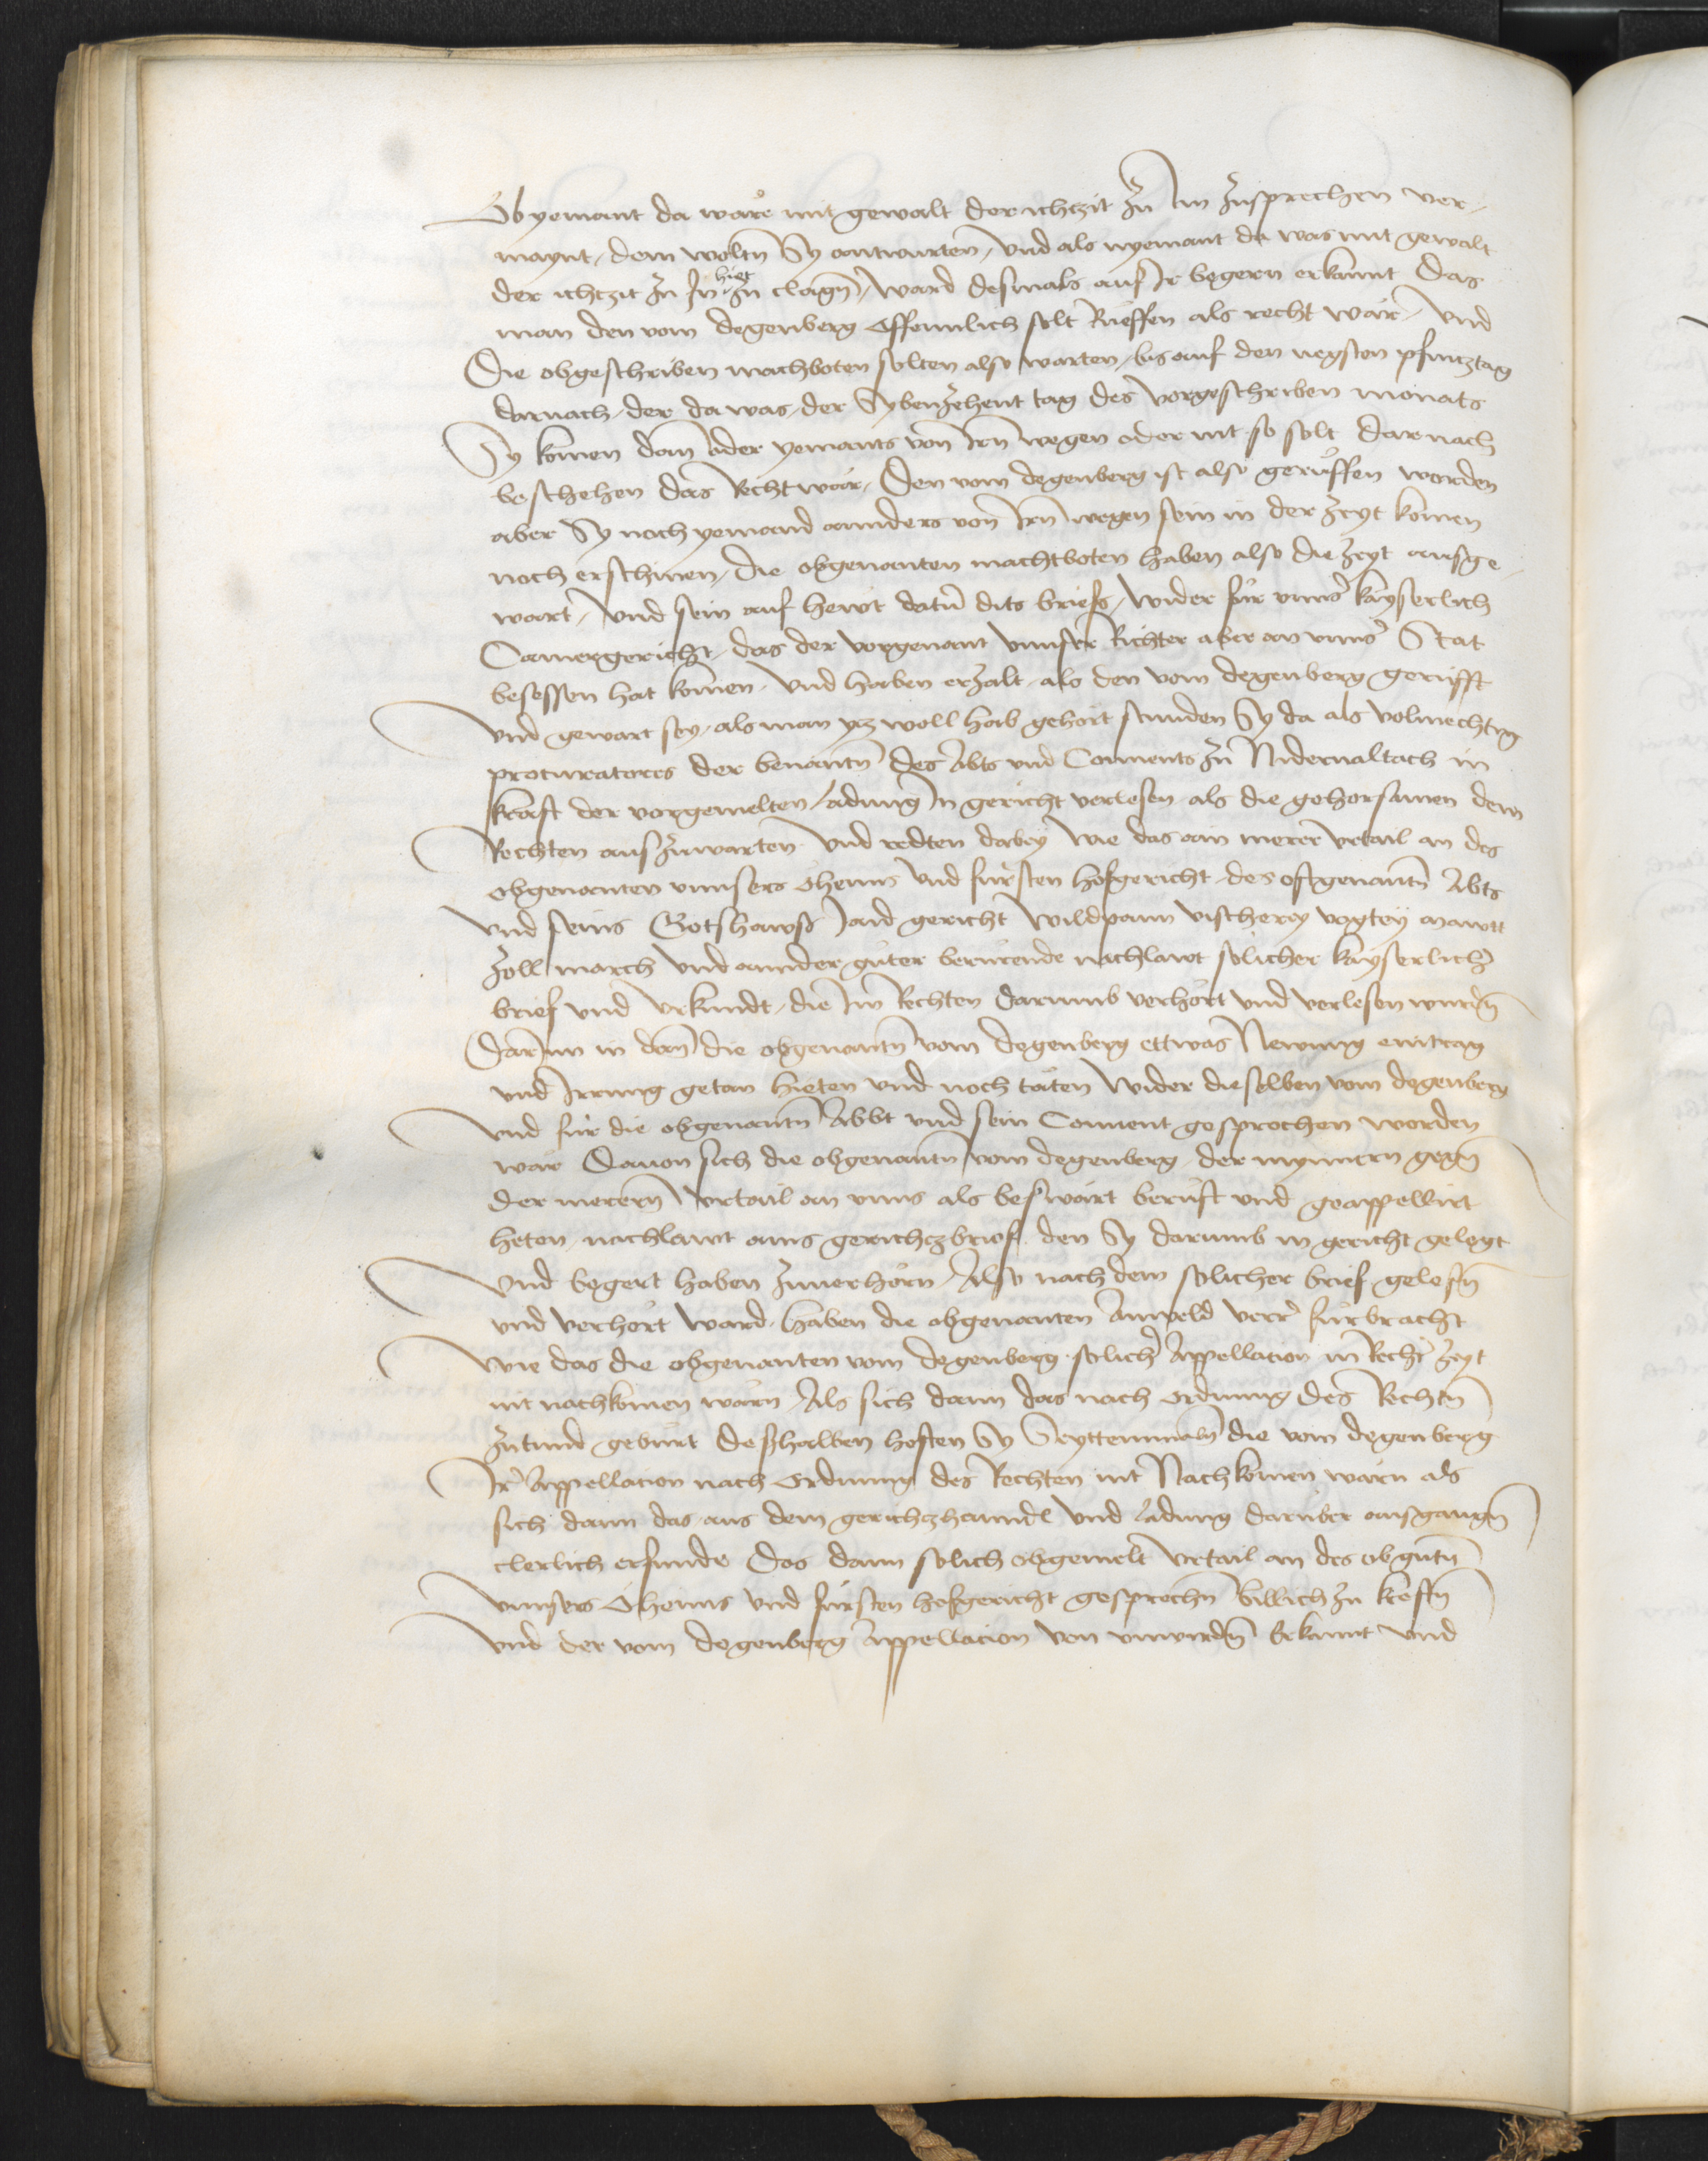 Ob yemant da wäre mit gewalt der ichtzit zu Im zusprechen ver-
maynt, dem woltn Sy antwurten, vnd als nyemant da was mit gewalt
der ichtzit zu In hiet zu clagn, ward desmals auf Ir begern erkannt Das
man den vom degenberg Offennlich solt Rueffen als recht wär, Vnd
Die obgeschriben machboten solten also warten, bis auf den negsten pfintztag
darnach, der da was, der Sybenzehent tag des vorgeschriben monats
Sy komen dan oder yemants von Irn wegen oder nit so solt darnach
beschehen das Recht wär, Den vom degenberg ist also gerufft worden
aber Sy noch yemand annders von Irn wegen sein in der zeyt komen
noch erschinen, die obgenanten machtboten haben also die zeyt ausge-
wart, Vnd sein auf hewt datum dits briefs, wider für vnnser kayserlich
Camergericht, das der vorgenant vnnser Richter aber an vnnser Stat
besessen hat komen. Vnd haben erzalt, als den vom degenberg gerufft
Vnd gewart sey, als man ytz woll hab gehört stunden Sy da als volmechtig
procuratores der benantn des Abts vnd Conuents zu Nidernaltach in
krafft der vorgemelten ladung In gericht verlesen als die gehorsamen dem
Rechten auszuwarten Vnd redten dabey wie das ain merer vrtail an des
obgenanten vnnsers Öheims Vnd fürsten hofgericht des oftgenantn Abts
Vnd seins Gotshawss Jaid gericht wildpann vischerey vogtey mawtt
zoll march Vnd annder güter berürende nachlawt solicher kayserlicher
brief vnd vrkundt, die Im Rechten darumb verhört vnd verlesen wurdn
Darinn in dan die obgenantn vom degenberg ettwas Newung eintrag
vnd Irrung getan hieten vnd noch täten Wider dieselben vom degenberg
Vnd für die obgenantn Abbt vnd sein Conuent gesprochen worden
wär Dauon sich die obgenantn vom degenberg, der mynnern gegn
der merern Vrtail an vnns als beswärt berufft vnd geappellirt
heten, nachlawt ains gerichtzbriefs, den Sy darumb in gericht gelegt
Vnd begert haben zuuerhörn, Also nach dem solicher brief gelesn
vnd verhört ward, haben die obgenanten Anweld verrer fürbracht
wie das die obgenanten vom degenberg solicher Appellation in Rechter zeyt
nit nachkomen wärn, Als sich dann das nach ordnung des Rechtn
zutund gebürt deshalben hoften Sy Seyttenmaln die vom degenberg
Ir Appellation nach Ordnung des Rechten nit Nachkomen wärn als
sich dann das aus dem gerichtzhanndl Vnd ladung darüber ausgangn
clerlich erfunde Das dann solich obgemelt Vrtail an des obgntn
vnnsers Öheims Vnd fürsten hofgericht gesprochn billich zu krefftn
Vnd der vom degenberg Appellation von vnwirdn bekannt Vnd